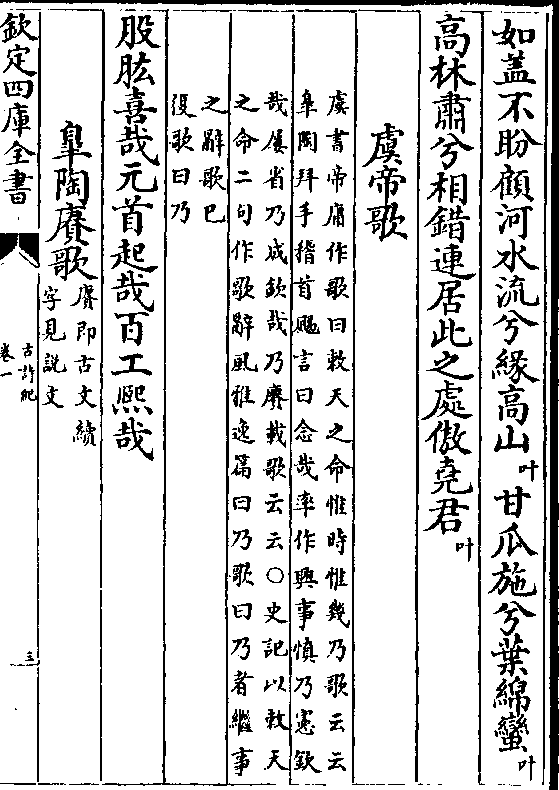 如盖不盼顧河水流兮緣高山叶甘瓜施兮葉綿蠻叶
高林肅兮相錯連居此之處傲堯君叶
虞帝歌
虞書帝庸作歌曰敕天之命惟時惟幾乃歌云云
臯陶拜手稽首颺言曰念哉率作興事慎乃憲欽
哉屢省乃成欽哉乃賡載歌云云○史記以敕天
之命二句作歌辭風雅逸篇曰乃歌曰乃者繼事
之辭歌已
復歌曰乃
股肱喜哉元首起哉百工熈哉
臯陶賡歌
賡即古文續
字見說文
欽定四庫全書
古詩紀
卷一
三